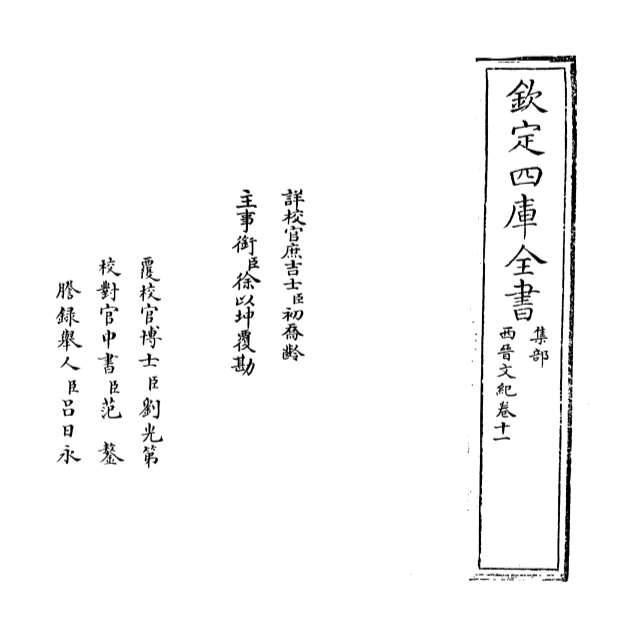 欽定四庫全書
集部
西晉文紀卷十一
詳校官庶吉士臣初喬齡
主事銜臣徐以坤覆勘
覆校官博士臣劉光第
校對官中書臣范鏊
謄錄舉人臣呂日永